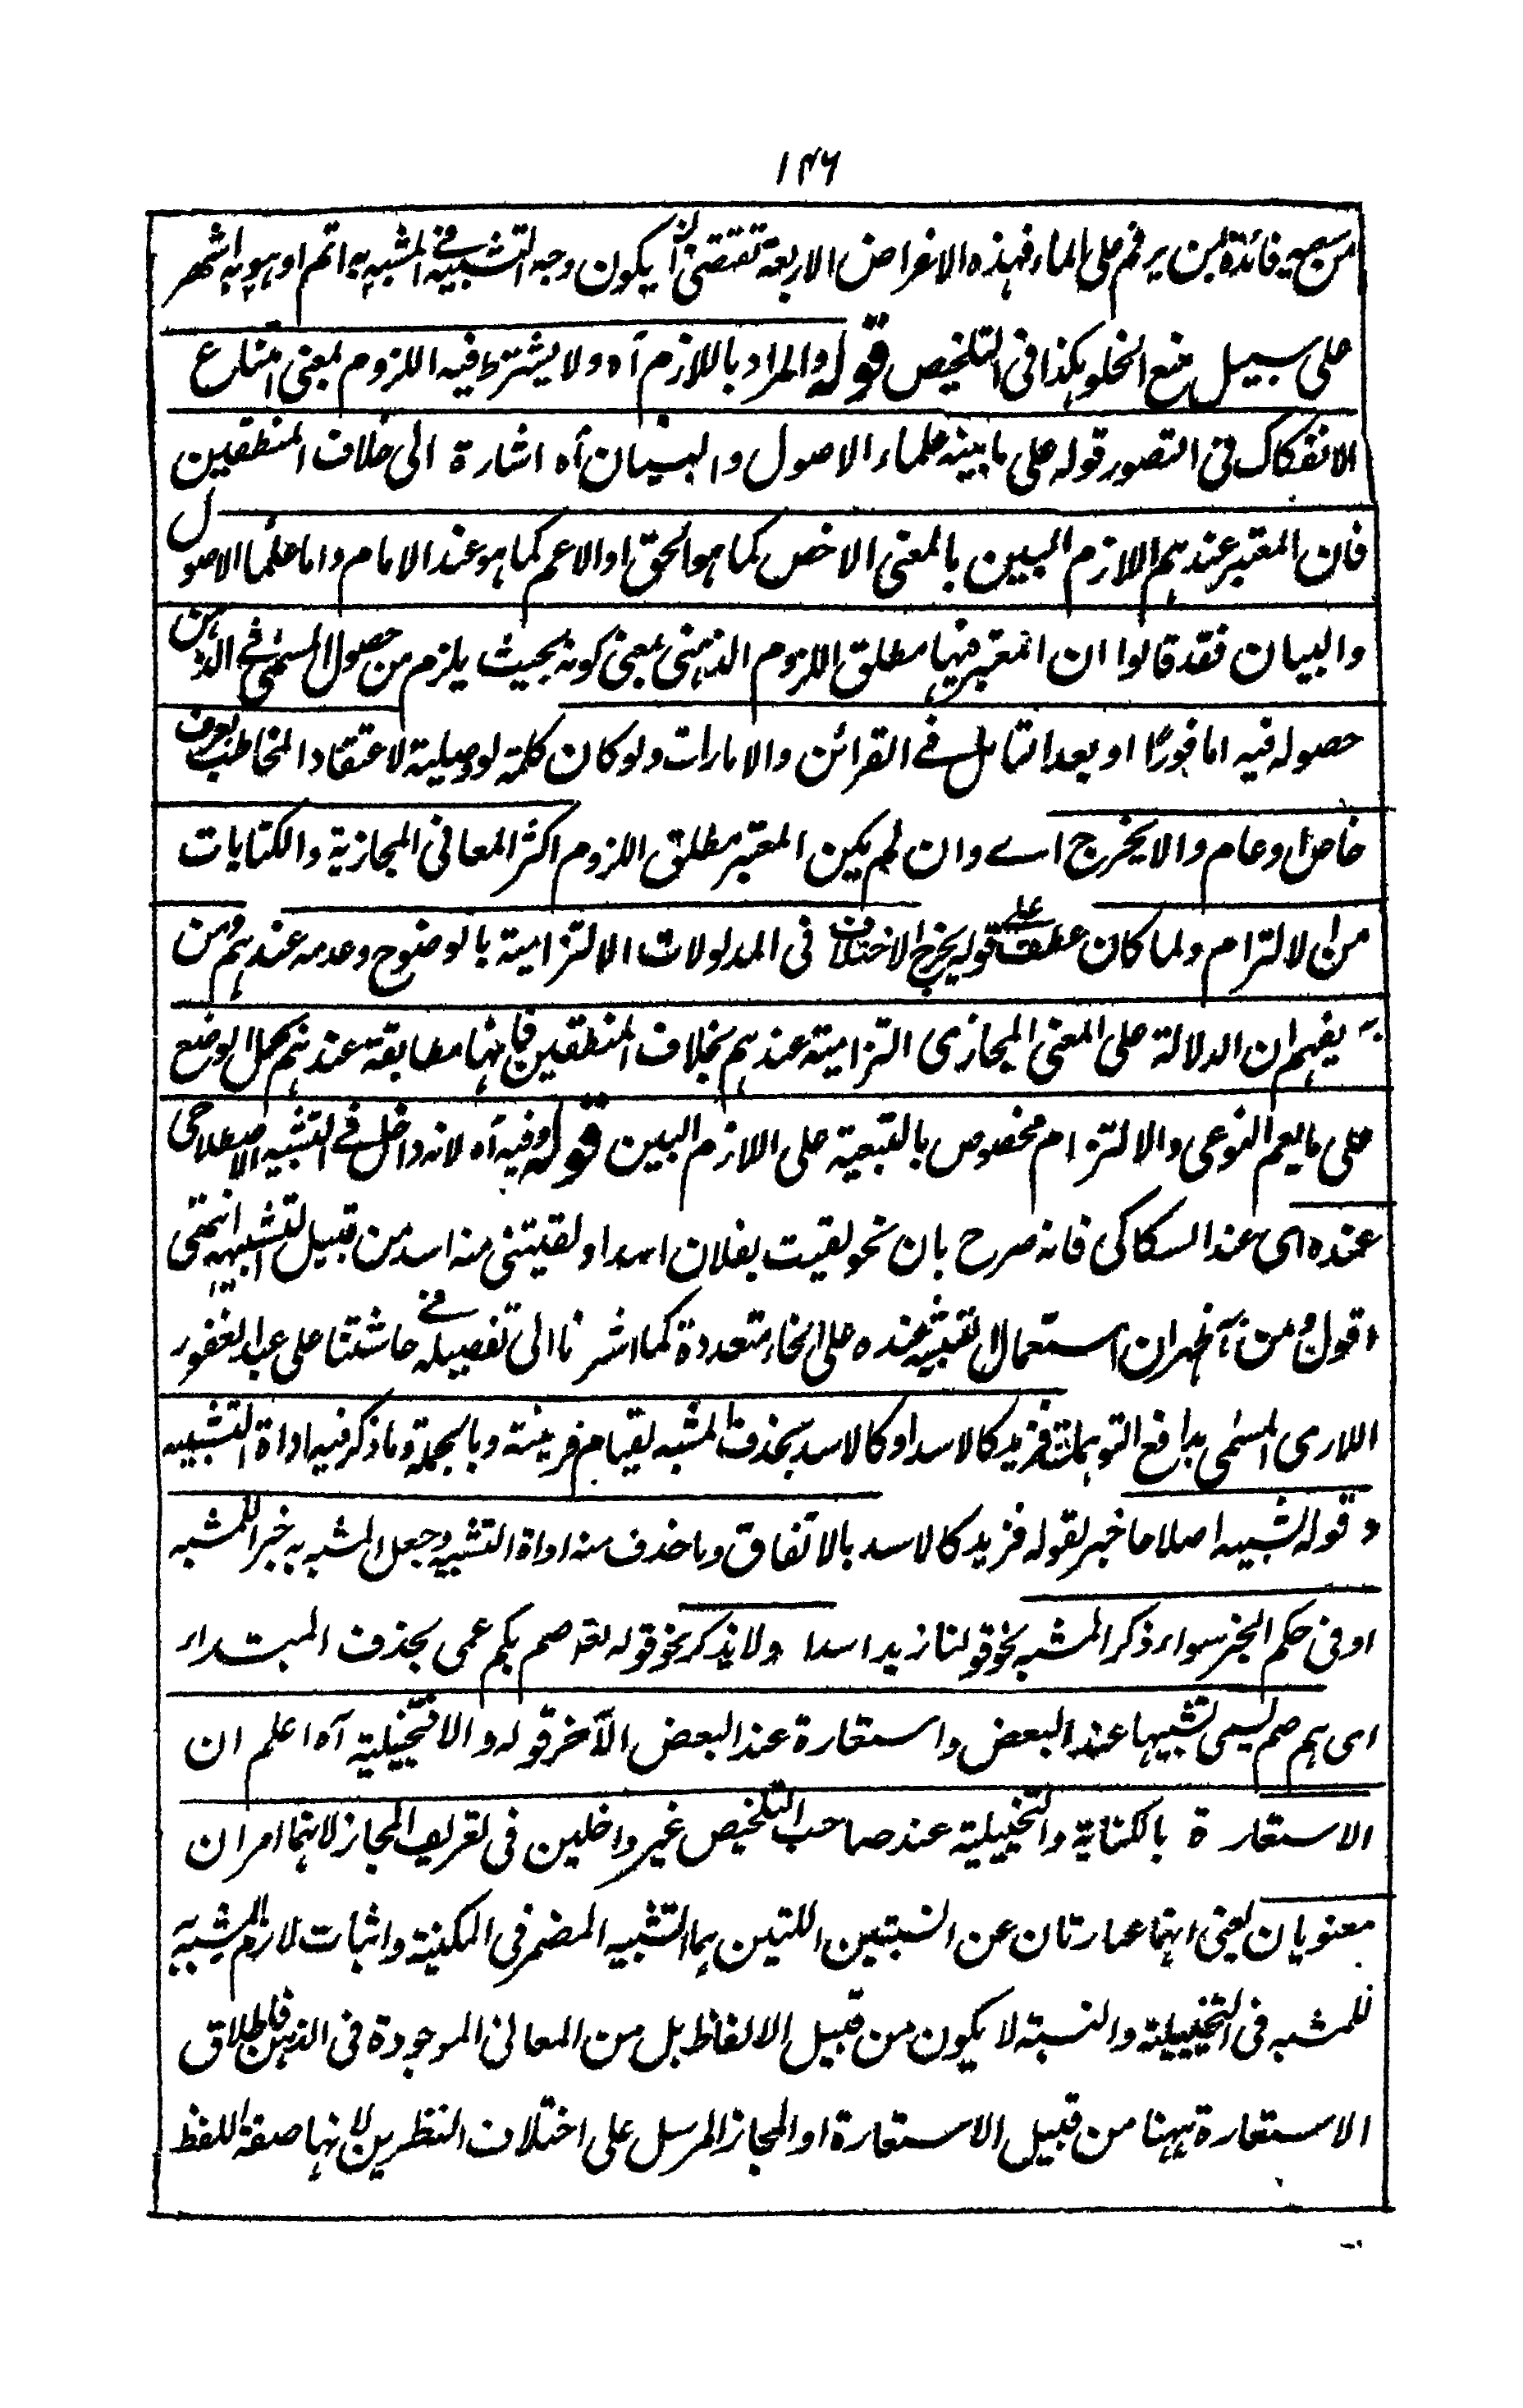 ۱۴۶
من سعيه فائدة بمن يرقم على الماء فهذه الاغراض الاربعة تقتضى ان يكون وجه التشبيه في المشبه به اتم او هو به اشهر
على سبيل منع الخلو هكذا فى التلخيص قوله والمراد باللازم آه ولا يشترط فيه اللزوم بمعنى امتناع
الانفكاك فى التصور قوله على ما بينه علماء الاصول والبيان آه اشارة الى خلاف المنطقيين
فان المعتبر عندهم اللازم البين بالمعنى الاخص كما هو الحق او الاعم كما هو عند الامام واما علماء الاصول
والبيان فقد قالوا ان المعتبر فيها مطلق اللزوم الذهنى بمعنى كونه بحيث يلزم من حصول المسمى في الذهن
حصوله فيه اما فورًا او بعد التامل في القرائن والامارات ولو كان كلمة لو وصلية لاعتقاد المخاطب بعرف
خاص او عام والا يخرج اے وان لم يكن المعتبر مطلق اللزوم اكثر المعانى المجازية والكنايات
من الالتزام ولما كان عطف على قوله يخرج الاختلاف فى المدلولات الالتزامية بالوضوح وعدمه عندهم ومن
به يفهم ان الدلالة على المعنى المجازى التزامية عندهم بخلاف المنطقيين فانها مطابقة عندهم بحمل الوضع
على ما يعم النوعى والالتزام مخصوص بالتبعية على اللازم البين قوله وفيه آه لانه داخل في التشبيه الاصطلاحى
عنده اى عند السكاكى فانه صرح بان نحو لقيت بفلان اسدا ولقيتنى منه اسد من قبيل التشبيه انتهى
اقول ومن آه ظهر ان استعمال التشبيه عنده على انحاء متعددة كما اشرنا الى تفصيله في حاشتنا على عبد الغفور
اللارى المسمى بدافع التوهمات فزيد كالاسد او كالاسد بحذف المشبه لقيام قرينة وبالجملة وما ذكر فيه اداة التشبيه
وقوله تشبيه اصلاحا خبر لقوله فزيد كالاسد بالاتفاق وما حذف منه اداة التشبيه وجعل المشبه به خبرا للمشبه
او فى حكم الخبر سواء ذكر المشبه نحو قولنا زيد اسدا ولا يذكر نحو قوله تعه صم بكم عمى بحذف المبتداء
اى هم صم يسمى تشبيها عند البعض واستعارة عند البعض الآخر قوله والا فتخيلية آه اعلم ان
الاستعارة بالكناية والتخييلية عند صاحب التلخيص غير داخلين فى تعريف المجاز لانهما امران
معنويان يعنى انهما عبارتان عن النسبتين اللتين هما التشبيه المضمر فى المكنية واثبات لازم المشبه به
للمشبه فى التخييلية والنسبة لا يكون من قبيل الالفاظ بل من المعانى الموجودة فى الذهن فاطلاق
الاستعارة ههنا من قبيل الاستعارة او المجاز المرسل على اختلاف النظرين لانها صفة اللفظ